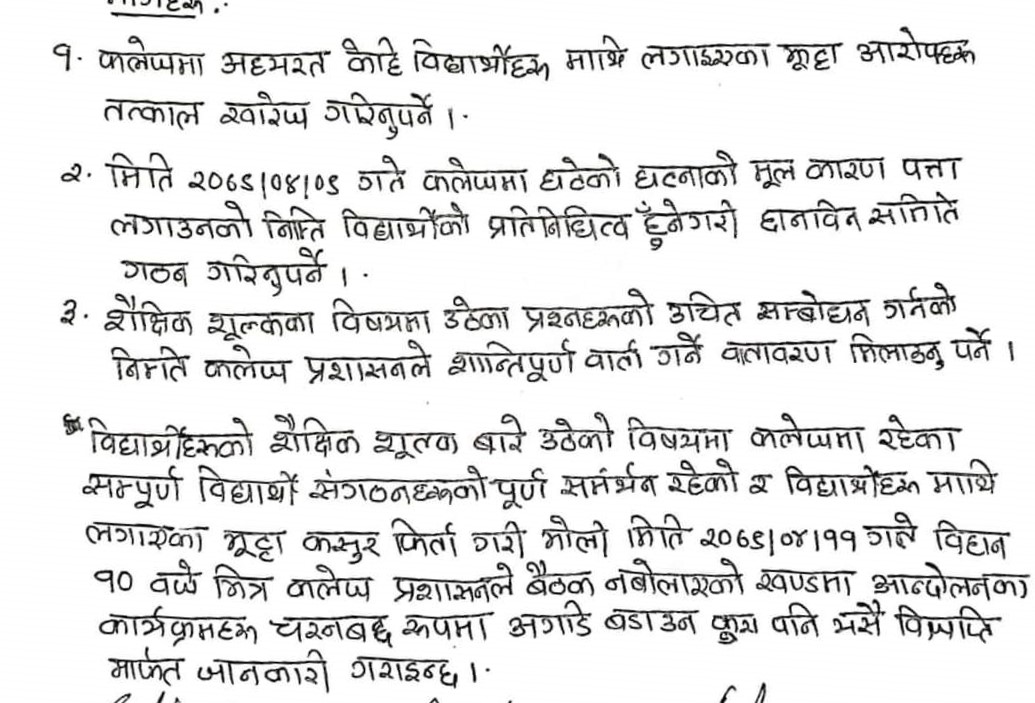 मागहरू :-
१. कलेजमा अध्ययरत केहि विद्यार्थीहरू माथि लगाइएका झूट्टा आरोपहरू
तत्काल खारेज गरिनुपर्ने ।
२. मिति २०६९।०४।०९ गते कलेजमा घटेको घटनाको मूल कारण पत्ता
लगाउनको निम्ति विद्यार्थीको प्रतिनिधित्व हुँनेगरी छानविन समिति
गठन गरिनुपर्ने ।
३. शैक्षिक शूल्कका विषयमा उठेका प्रश्नहरूको उचित सम्बोधन गर्नको
निम्ति कलेज प्रशासनले शान्तिपूर्ण वार्ता गर्ने वातावरण मिलाउनु पर्ने ।
विद्यार्थीहरूको शैक्षिक शूल्क बारे उठेको विषयमा कलेजमा रहेका
सम्पूर्ण विद्यार्थी संगठनहरूको पूर्ण समंर्थन रहेको र विद्यार्थीहरू माथि
लगाएका झूट्टा कसुर फिर्ता गरी भोली मिति २०६९।०४।११ गते विहान
१० वजे भित्र कलेज प्रशासनले बैठक नबोलाएको खण्डमा आन्दोलनका
कार्यक्रमहरू चरनबद्ध रूपमा अगाडि बडाउन कुरा पनि यसै विज्ञप्ति
मार्फत जानकारी गराइन्छ ।